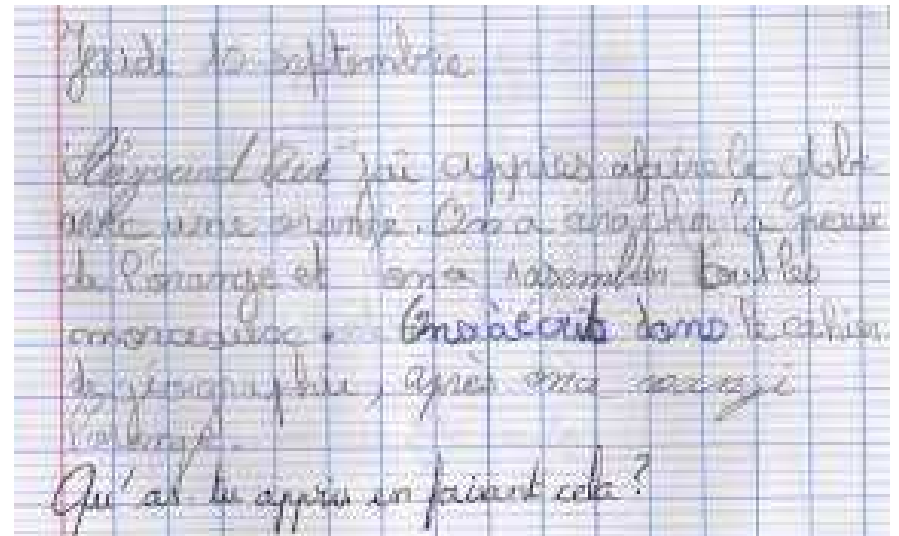 Jeudi 10 septembre
j'ai appris afaire le globe
avec une orange. On a aracher la peau
de l'orange et on a rasembler tout les
morceaux. On a écrit dans le cahier
de géographie, après ona mangé
l'orange.
Qu'as-tu appris en faisant cela?